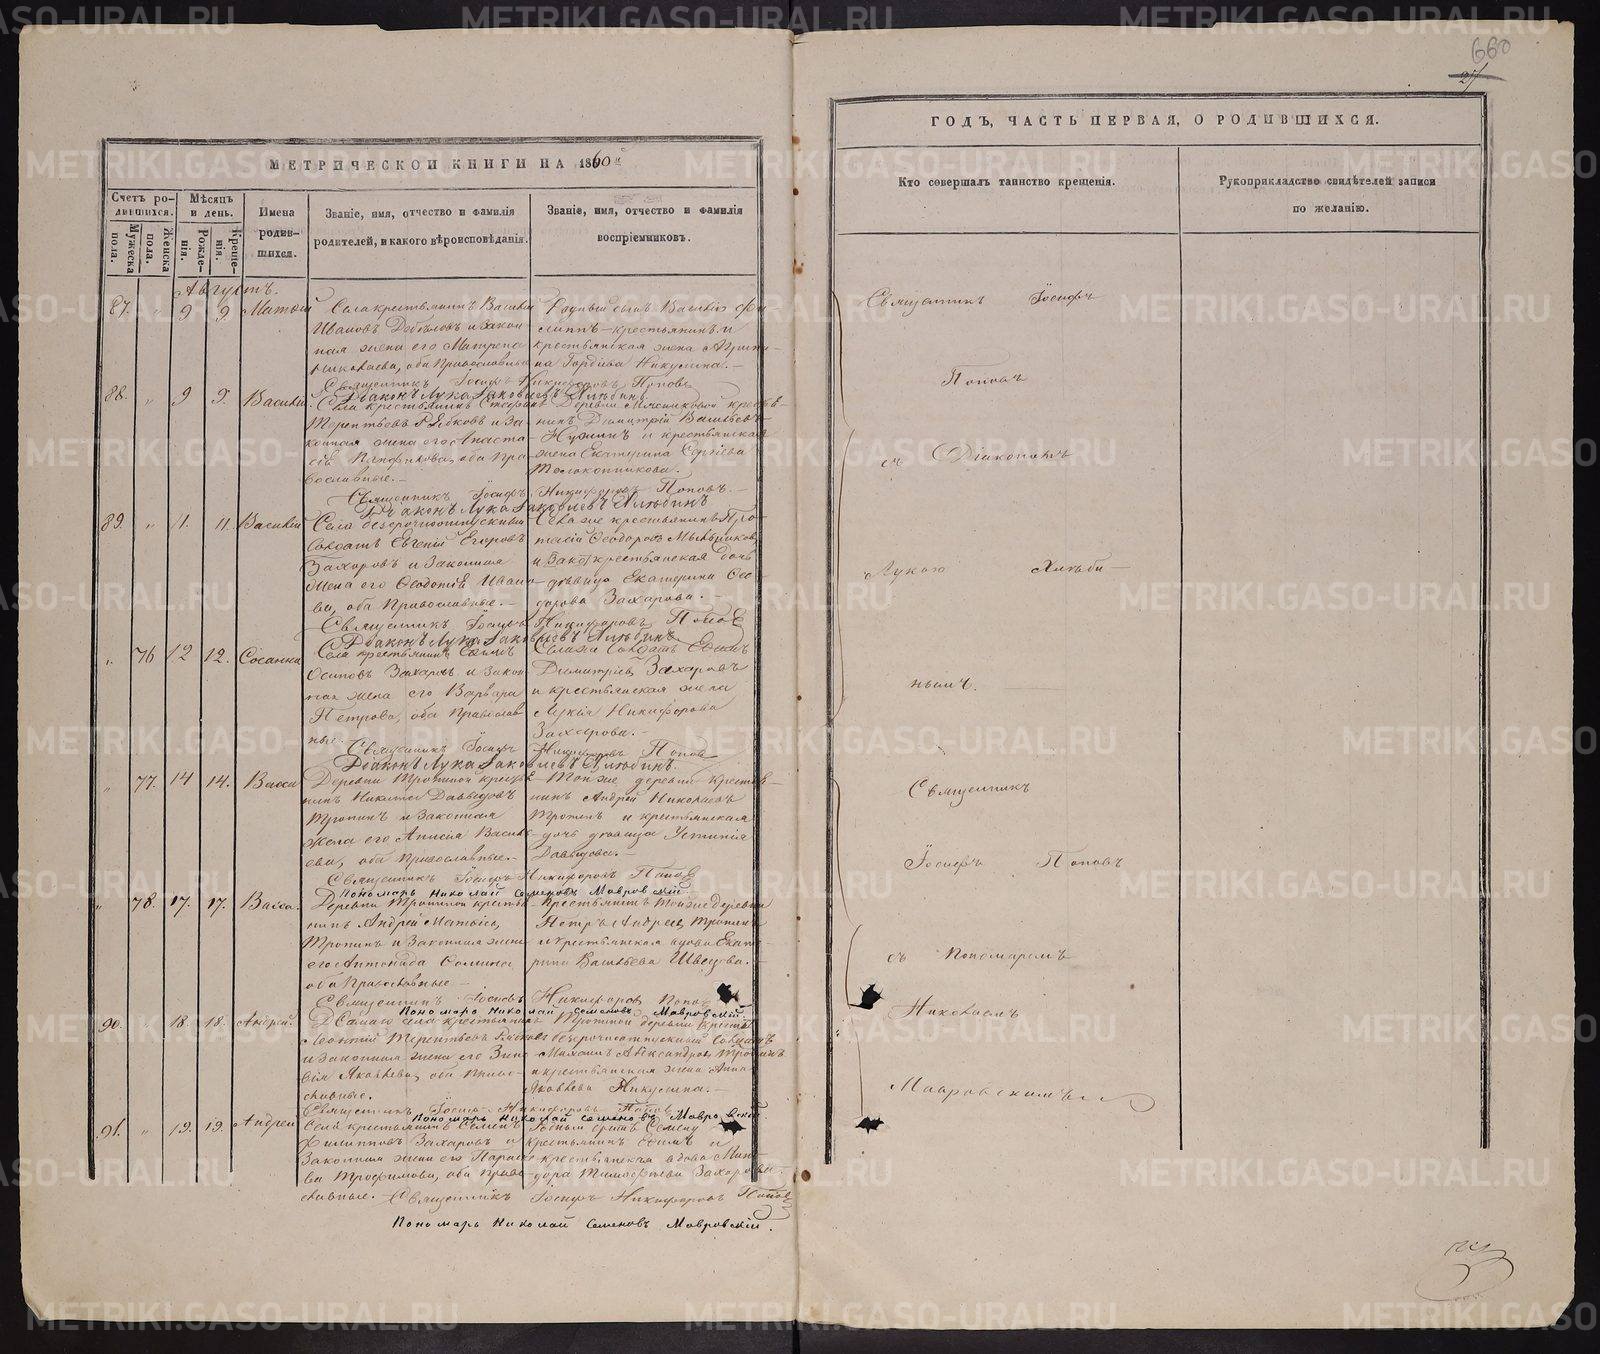 660
27
МЕТРИЧЕСКОЙ КНИГИ НА 1860 й
Счетъ родившихся.
Мужеска пола.
Женска пола.
Мѣсяцъ и день.
Рожденія.
Крещенія.
Имена родившихся.
Званіе, имя, отчество и фамилія
родителей, и какого вѣроисповѣданія.
Званіе, имя, отчество и фамилія
воспріемниковъ.
Августъ.
87. " 9 9. Матѳій
Села крестьянинъ Василій
Ивановъ и закон-
ная жена его Матрена
Николаева, оба Православные
Родный сынъ Василія Фи-
липпъ крестьянинъ и
крестьянская жена Агрипи-
на Гордѣева Никулина.
Священникъ Іосифъ Никифоровъ Поповъ
Діаконъ Лука Іаковлевъ Хлѣбинъ
88. " 9 9. Василій
Села крестьянинъ Стефанъ
Терентьевъ Рябковъ и за-
конная жена его Анаста-
сія Панфилова, оба Пра-
вославные.
Деревни крестья-
нинъ Димитрій Васильевъ
и крестьянская
жена Екатерина Сергіева
Толоконникова.
Священникъ Іосифъ Никифоровъ Поповъ.
Діаконъ Лука Іаковлевъ Хлѣбинъ
89. " 11. 11. Василій
Села безсрочноотпускный
Солдатъ Евгеній Егоровъ
Захаровъ и законная
жена его Ѳеодотія Ивано-
ва, оба Православные.
Села же крестьянинъ Про-
тасій Ѳеодоровъ Мыльников
и крестьянская дочь
дѣвица Екатерина Ѳео-
дорова Захарова.
Священникъ Іосифъ Никифоровъ Поповъ
Діаконъ Лука Іаковлевъ Хлѣбинъ
" 76 12 12. Сосанна
Села крестьянинъ Ефимъ
Осиповъ Захаровъ и закон-
ная жена его Варвара
Петрова, оба Православ-
ные.
Села же Солдатъ Ефимъ
Димитріевъ Захаровъ
и крестьянская жена
Лукія Никифорова
Захарова.
Священникъ Іосифъ Никифоровъ Поповъ
Діаконъ Лука Іаковлевъ Хлѣбинъ.
" 77. 14 14. Васса
Деревни Тропиной крестья-
нинъ Никита Давыдовъ
Тропинъ и законная
жена его Анисія Василь-
ева, оба православные.
Той же деревни крестья-
нинъ Андрей Николаевъ
Тропинъ и крестьянская
дочь дѣвица Устинія
Давыдова.
Священникъ Іосифъ Никифоровъ Поповъ
Пономарь Николай Семеновъ Мавровскій
" 78. 17. 17. Васса.
Деревни Тропиной крестья-
нинъ Андрей Матѳіевъ
Тропинъ и законная жена
его Антонида Ѳомина,
оба Православные
Крестьянинъ той же деревни
Петръ Андреевъ Тропинъ
и крестьянская вдова Екате-
рина Васильева Швецова.
Священникъ Іосифъ Никифоровъ Поповъ
Пономарь Николай Семеновъ Мавровскій.
90. " 18. 18. Андрей.
Самаго села крестьянинъ
Леонтій Терентьевъ Рябковъ
и законная жена его Зино-
вія Яковлева, оба Право-
славные.
Тропиной деревни
безсрочноотпускный Солдатъ
Михаилъ Александровъ Тропинъ
и крестьянская жена Анна
Яковлева Никулина.
Священникъ Іосифъ Никифоровъ Поповъ
Пономарь Николай Семеновъ Мавровскій
91. " 19. 19. Андрей
Села крестьянинъ Семенъ
Филипповъ Захаровъ и
законная жена его Параске-
ва Трофимова, оба право-
славные.
Родный братъ Семену
крестьянинъ Ефимъ и
крестьянская вдова Мино-
дора Тимофеева Захарова.
Священникъ Іосифъ Никифоровъ Поповъ
Пономарь Николай Семеновъ Мавровскій.
ГОДЪ, ЧАСТЬ ПЕРВАЯ, О РОДИВШИХСЯ.
Кто совершалъ таинство крещенія.
Рукоприкладство свидѣтелей записи
по желанію.
Священникъ Іосифъ
Поповъ
съ Діакономъ
Лукою Хлѣби-
нымъ.
Священникъ
Іосифъ Поповъ
съ Пономаремъ
Николаемъ
Мавровскимъ
METRIKI.GASO-URAL.RU